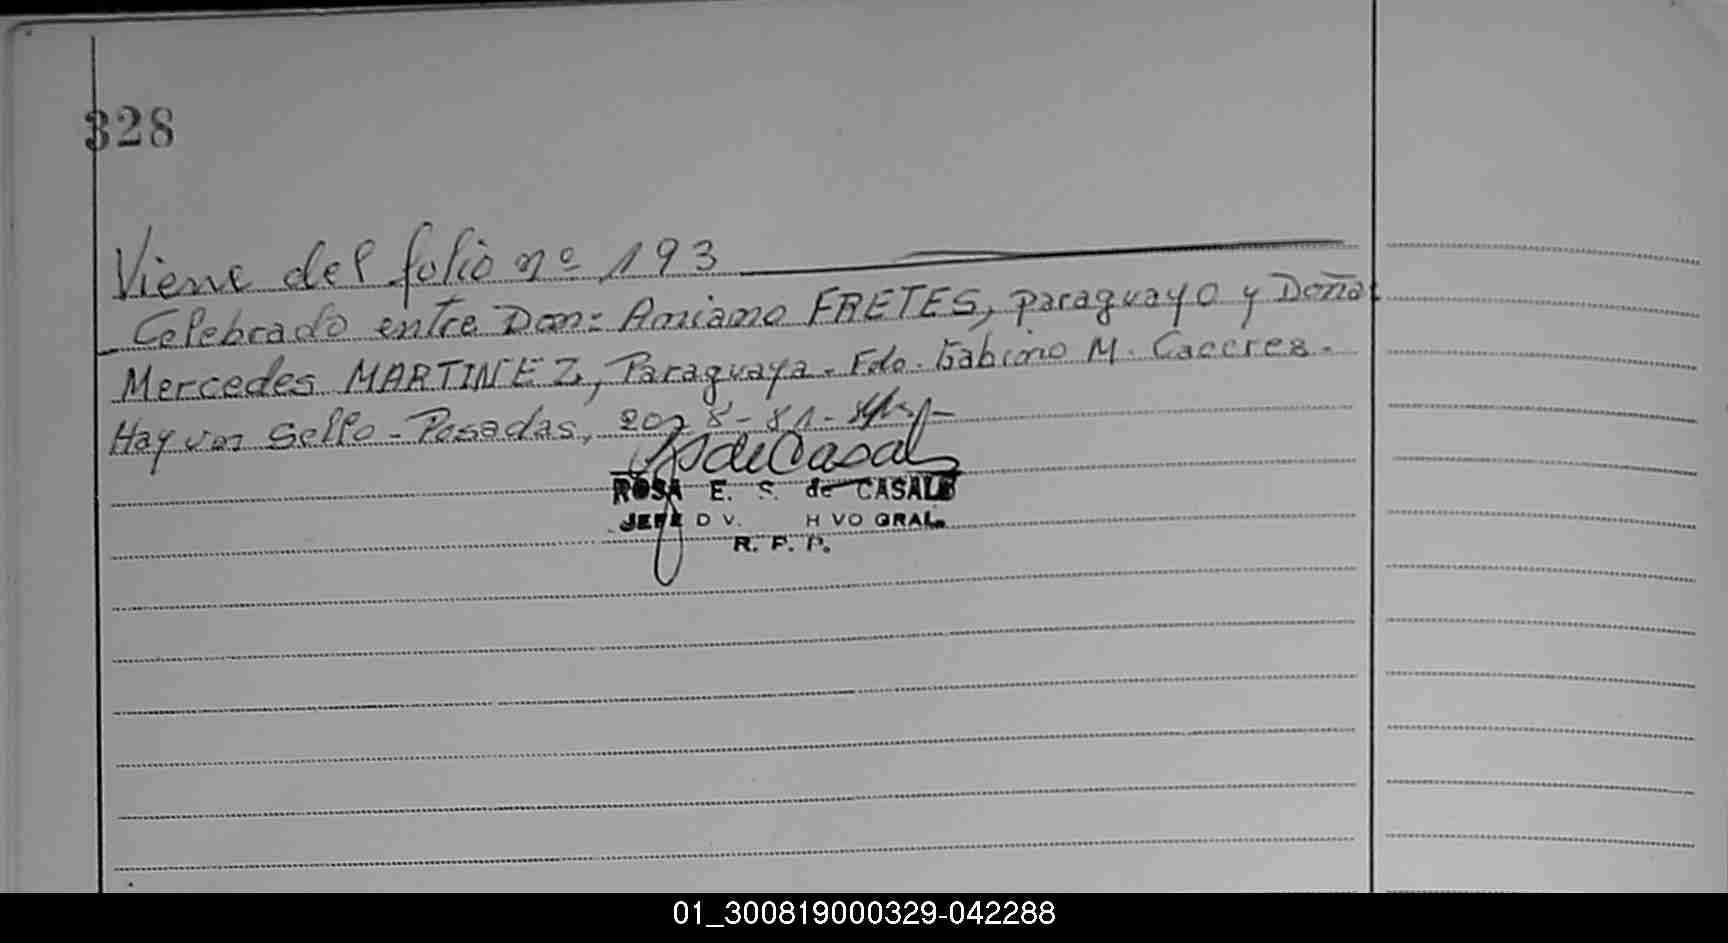 328
Viene del folio nº 193
Celebrado entre Don: Aniano FRETES, paraguayo y Doña
Mercedes MARTINEZ, Paraguaya. Fdo. Gabino M. Caceres.
Hay un Sello - Posadas, 8 - 81 -
de Casal
ROSA E. S. de CASALS
JEFE D V. H VO GRAL.
R. P. P.
01_300819000329-042288